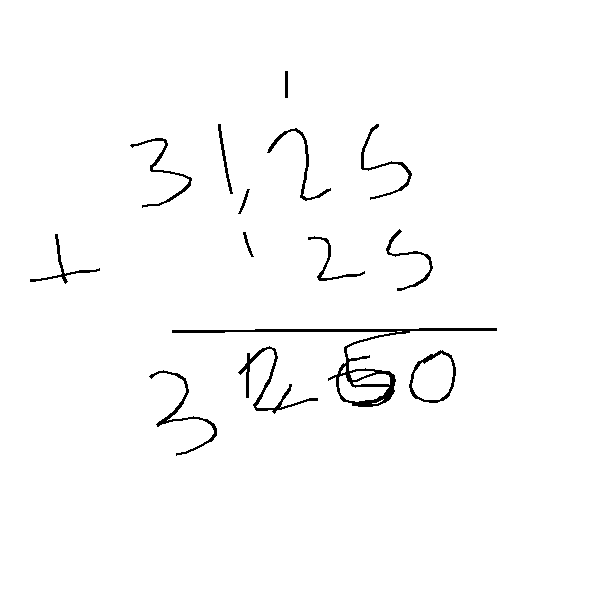 1
31,25
+ 1 25
32,50